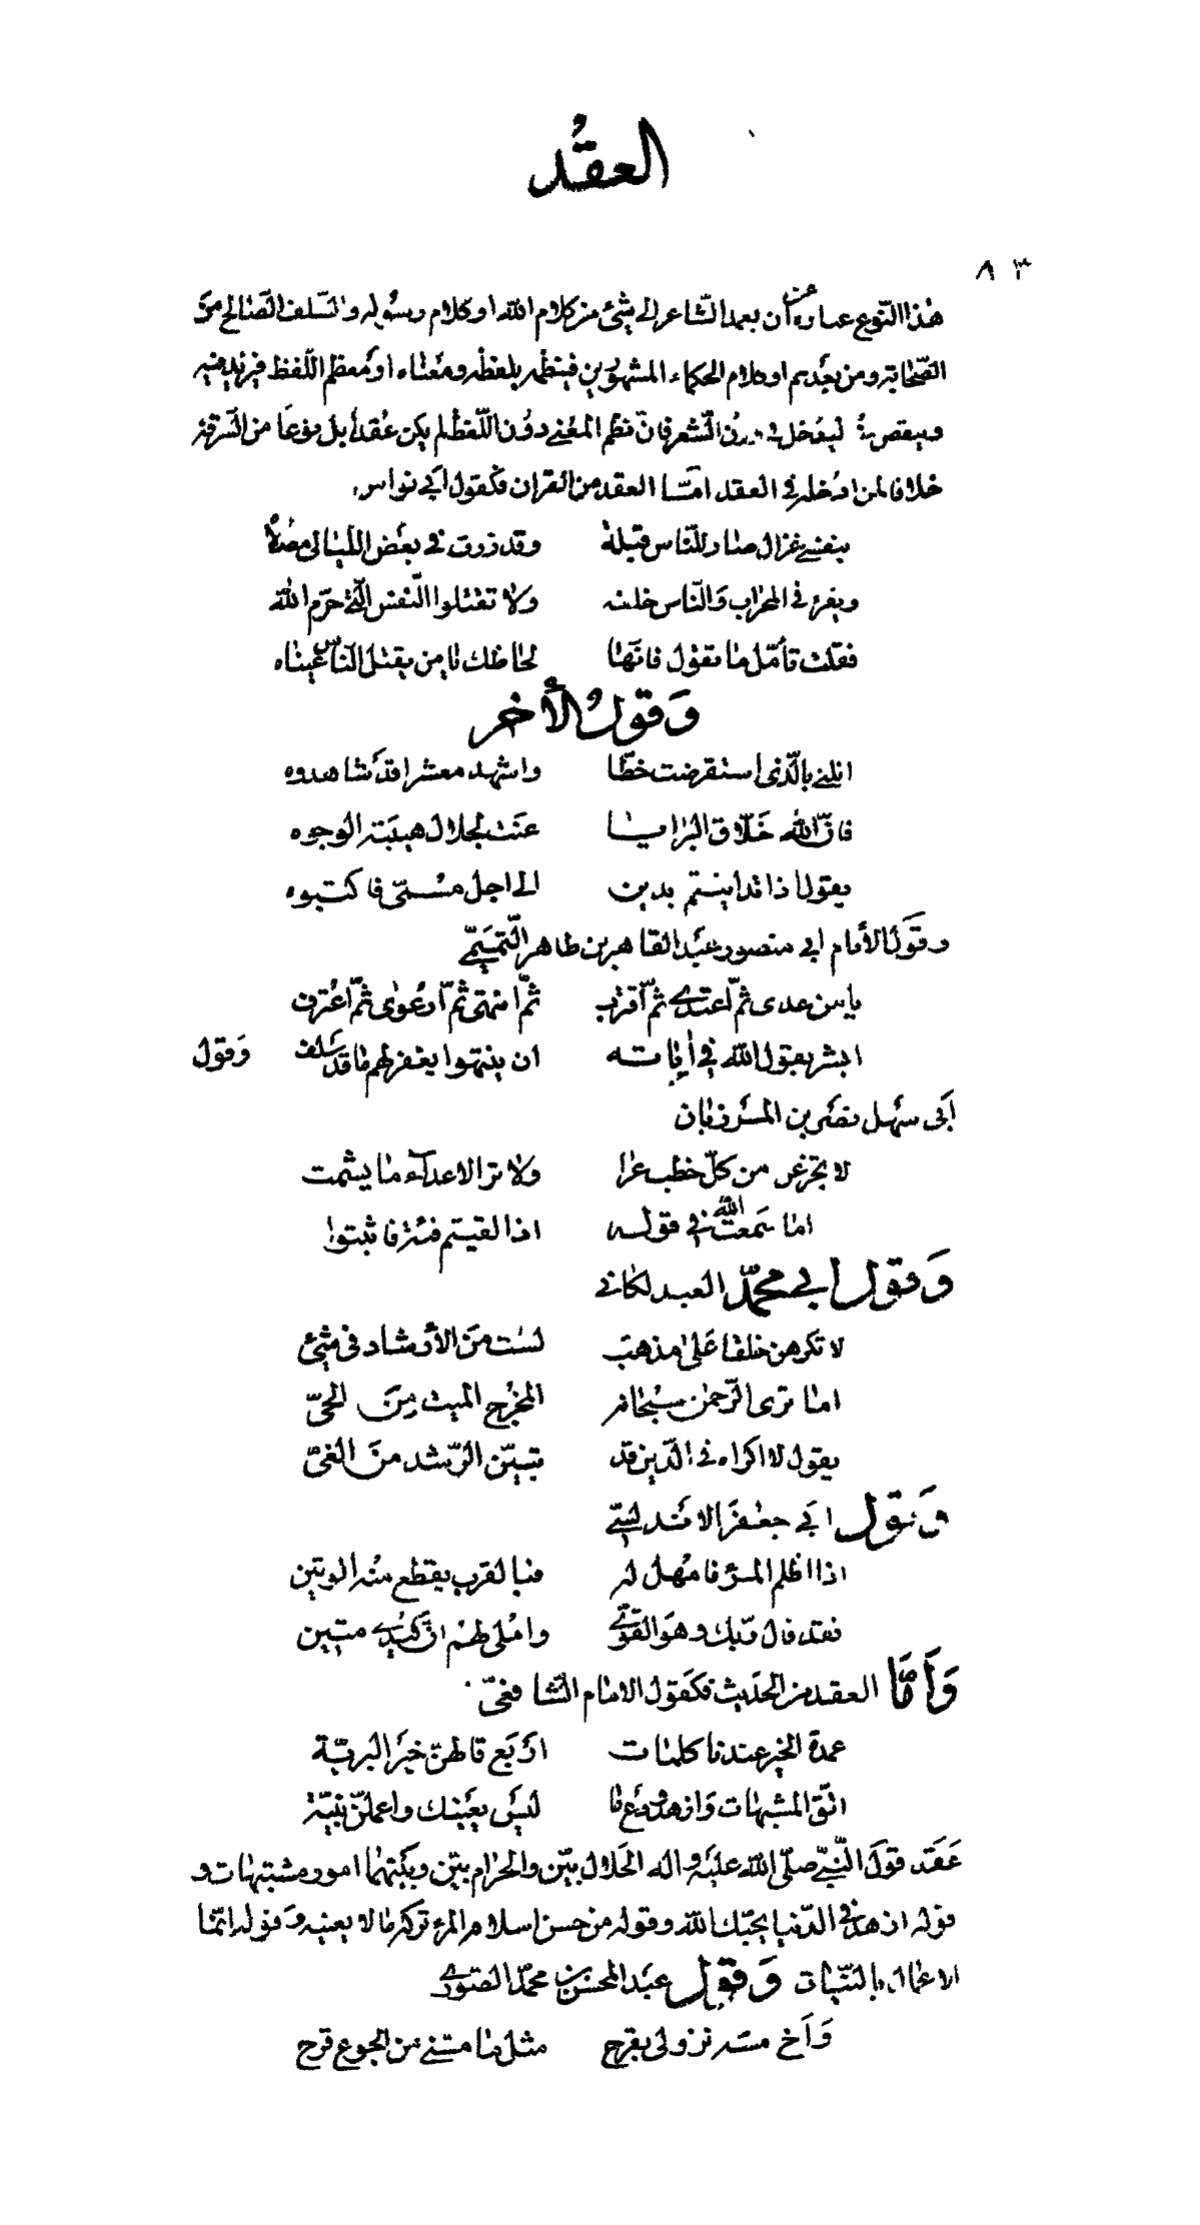 العقد
٨٣
هذا النوع عبارة عن أن يعمد الشاعر إلى شيء من كلام الله او كلام رسوله والسلف الصالح من
الصحابة ومن بعدهم او كلام الحكماء المشهورين فينظمه بلفظه ومعناه او معظم اللفظ فيزيد فيه
وينقص منه ليدخل في وزن الشعر فان نظم المعنى دون اللفظ لم يكن عقدا بل نوعا من السرقة
خلافا لمن ادخله في العقد امّا العقد من القران فكقول أبي نواس
بنفسي غزال صار للناس قبلة وقد زرت في بعض الليالي مصلاه
ويقرء في المحراب والناس خلفه ولا تقتلوا النفس الّتي حرّم الله
فقلت تأمّل ما تقول فانّها لحاظك يا من يقتل الناس عيناه
وقول الأخر
انلني بالّذي استقرضت خطّا واشهد معشرا قد شاهدوه
فانّ الله خلّاق البرايا عنت لجلال هيبته الوجوه
يقول اذا تداينتم بدين الى اجل مسمّى فاكتبوه
وقول الأمام ابي منصور عبد القاهر بن طاهر التّميميّ
يا من عدى ثمّ اعتدى ثمّ اقترف ثمّ انتهى ثمّ ارعوى ثمّ اعترف
ابشر بقول الله في أياته ان ينتهوا يغفر لهم ما قد سلف وقول
أبي سهل نصر بن المرزبان
لا تجزعن من كلّ خطب عرا ولا تر الاعدآء ما يشمت
اما سمعت الله في قوله اذا لقيتم فئة فاثبتوا
وقول ابي محمّد العبدلكاني
لا تكرهن خلقا على مذهب لست من الأرشاد في شيء
اما ترى الرّحمن سبحانه المخرج الميت من الحيّ
يقول لا اكراه في الدّين قد تبيّن الرّشد من الغيّ
وقول ابي جعفر الاندلسيّ
اذا ظلم المرء فامهل له فبالقرب يقطع منه الوتين
فقد قال ربّك وهو القويّ واملي لهم انّ كيدي متين
وأمّا العقد من الحديث فكقول الامام الشافعيّ
عمدة الخير عندنا كلمات اربع قالهنّ خير البريّة
اتّق المشبهات وازهد ودع ما ليس يعنيك واعملنّ بنيّة
عقد قول النّبيّ صلّى الله عليه واله الحلال بيّن والحرام بيّن وبينهما امور مشتبهات و
قوله ازهد في الدّنيا يحبّك الله وقوله من حسن اسلام المرء تركه ما لا يعنيه وقوله انّما
الاعمال بالنيّات وقول عبد المحسن بن محمّد الصّوري
وأخ مسّه نزولي بقرح مثل ما مسّني من الجوع قرح